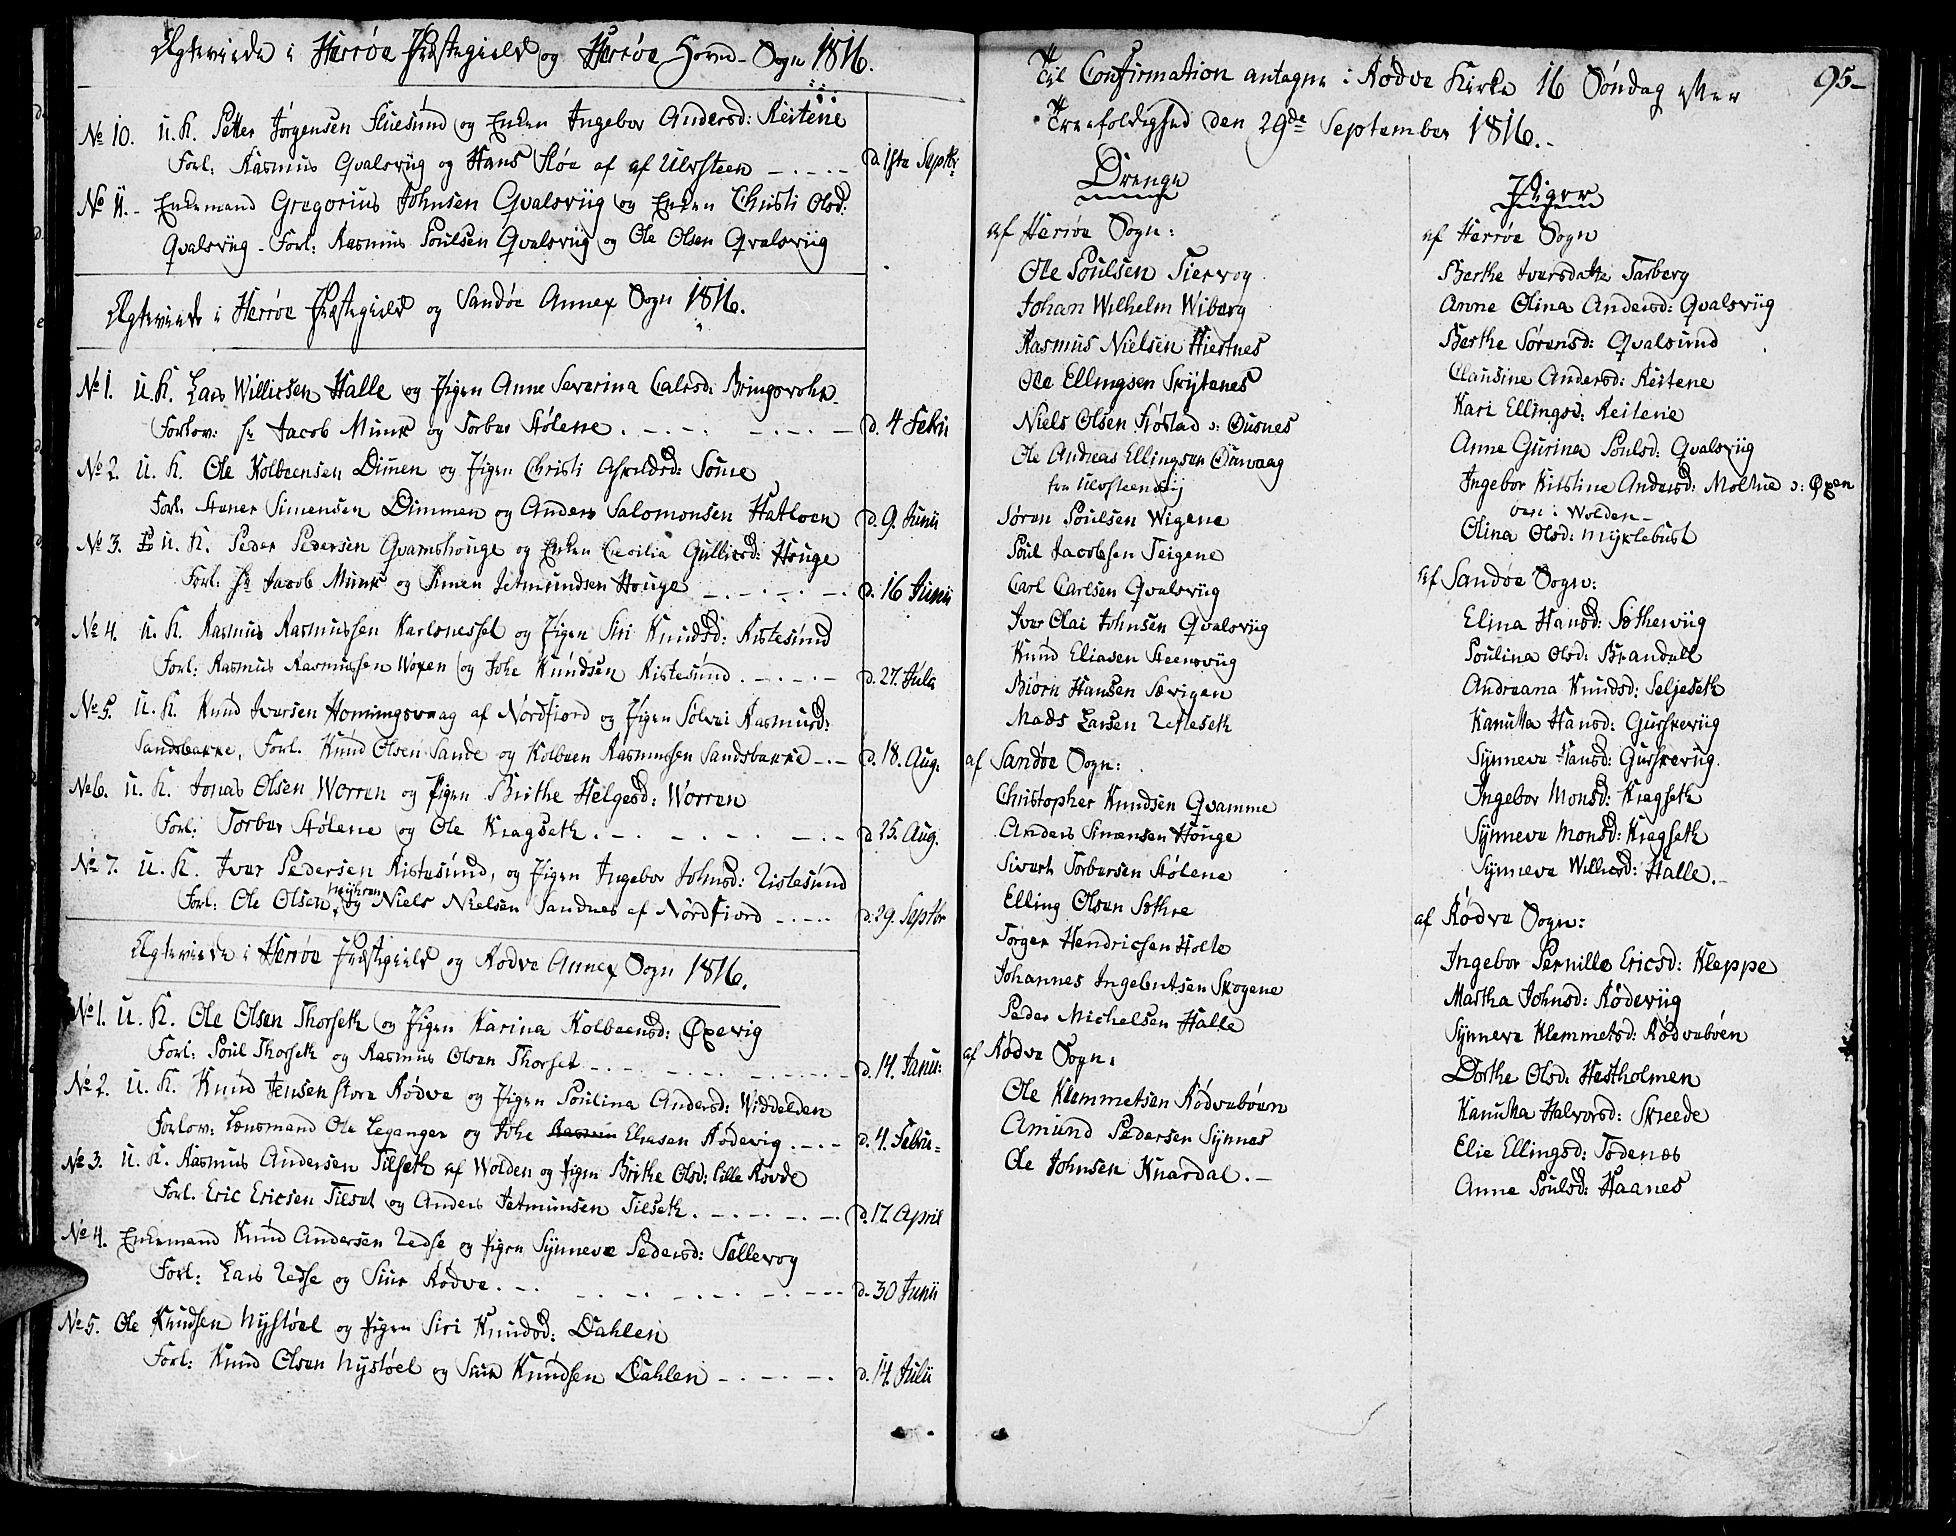 Ægteviede i Herrøe Præstegield og Herrøe Hoved-Sogn 1816.
No 10. U. K. Petter Jørgensen Fluesund og Enken Ingebor Andersd: Reitene
Forl: Rasmus Qvalsviig og Hans Støe af af Ulvsteen d. 1ste Septbr:
No 11. - Enkemand Gregorius Johnsen Qvalsviig og Enken Christi Olsd:
Qvalsviig - Forl: Rasmus Poulsen Qvalsviig og Ole Olsen Qvalsviig
Ægteviede i Herrøe Præstegield og Sandøe Annex Sogn 1816.
No 1. U. K. Lars Willicsen Halle og Pigen Anne Severina Carlsd:
Forlov: Hr Jacob Munk og Torber Stølene. d. 4 Febr
No 2. U. K. Ole Kolbeensen Dimen og Pigen Christi
Forl. Simensen Dimmen og Anders Salomonsen Hatloen d. 9. Junii
No 3. U. K. Peder Pedersen Qvamshouge og Enken Cecilia Gullicsd: Houge
Forl: Hr Jacob Munk og Simen Jetmundsen Houge d. 16 Junii
No 4. U. K. Rasmus Rasmussen Karlsnesset og Pigen Siri Knudsd: Ristesund
Forl: Rasmus Rasmussen Woxen og Johe Knudsen Ristesund. d. 27. Julii
No 5. U. K. Knud Iversen Homingsvaag af Nordfiord og Pigen Sølvei Rasmusd:
Sandsbakke, Forl. Knud Olsen Sande og Kolbeen Rasmussen Sandsbakke d. 18. Aug:
No 6. U. K. Jonas Olsen Worren og Pigen Birthe Helgesd: Worren
Forl: Torber Stølene og Ole Kragseth. d. 25. Aug.
No 7. U. K. Iver Pedersen Ristesund, og Pigen Ingebor Johnsd: Ristesund
Forl: Ole Olsen og Niels Nielsen Sandnes af Nordfiord d. 29. Septbr
Ægteviede i Herrøe Præstegield og Rødve Annex Sogn 1816.
No 1. U. K. Ole Olsen Thorseth og Pigen Karina Kolbeensd: Øxevig
Forl: Poul Thorseth og Rasmus Olsen Thorset d. 14. Janu:
No 2. U. K. Knud Jensen store Rødve og Pigen Poulina Andersd: Widdelden
Forlov: Lensmand Ole Leganger og Johe Rasmus Eliasen Rødevig. d. 4. Febru=
No 3. U. K. Rasmus Andersen Tilseth af Wolden og Pigen Brithe Olsd: lille Rovde
Forl. Eric Ericsen Tilset og Anders Jetmunsen Tilseth. d. 17. April
No 4. Enkemand Knud Andersen og Pigen Synneve Pedersd: Sællevog
Forl: Lars og Siur Rødve. d. 30 Junii
No 5. Ole Knudsen Nystøel og Pigen Siri Knudsd: Dahlen
Forl: Knud Olsen Nystøel og Siur Knudsen Dahlen d. 14. Julii
95-
Til Confirmation antagne i Rødve Kirke 16 Søndag efter
Treefoldighed den 29de September 1816.
Drenge
af Herrøe Sogn:
Ole Poulsen Tiervog
Johan Wilhelm Wiberg
Rasmus Nielsen Hiertnes
Ole Ellingsen Skytenes
Niels Olsen Frøstad ɔ: Ousnes
Ole Andreas Ellingsen
fra Ulvsteenvig
Søren Poulsen Wigene
Poul Jacobsen Teigene
Carl Carlsen Qvalsviig
Iver Olai Johnsen Qvalsviig
Knud Eliasen Steensviig
Biørn Hansen Sævigen
Mads Larsen Refseseth
af Sandøe Sogn:
Christopher Knudsen Qvamme
Anders Simensen Houge
Sivert Torbersen Stølene
Elling Olsen Sæthre
Torger Hendricsen Holte
Johannes Ingebritsen Skogene
Peder Michelsen Halle
af Rødve Sogn:
Ole Klemmetsen Rødvebøen
Amund Pedersen Synnes
Ole Johnsen Knardal.
Piger
af Herrøe Sogn
Berthe Iversdatte Tarberg
Anne Olina Andersd: Qvalsviig
Berthe Sørensd: Qvalsund
Claudine Andersd: Reitene
Kari Ellingsd: Reitene
Anne Gurina Poulsd: Qvalsviig
Ingebor Kirstine Andersd: Moltue ɔ: Øxen
ven i Wolden
Olina Olsd: Myklebust
af Sandøe Sogn:
Elina Hansd: Sætherviig
Poulina Olsd: Brandall
Andreana Knudsd: Seljeseth
Kanutta Hansd: Gurskeviig
Synneva Hansd: Gurskeviig.
Ingebor Monsd: Kragseth
Synneva Monsd: Kragseth
Synneva Willicsd: Halle.
af Rødve Sogn:
Ingebor Pernille Ericsd: Kleppe
Martha Johnsd: Rødeviig
Synneva Klemmetsd: Rødvebøen
Dorthe Olsd: Hestholmen
Kanutta Halvorsd: Skreede
Elie Ellingsd: Tødenes
Anne Poulsd: Haanes